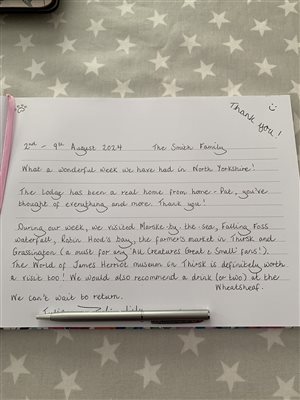 Thank you!
2nd - 9th August 2024 The Smith Family
What a wonderful week we have had in North Yorkshire!
The Lodge has been a real home from home - Pat, you've
thought of everything and more. Thank you!
During our week, we visited Marske-by the-sea, Falling Foss
waterfall, Robin Hood's bay, the farmer's market in Thirsk and
Grassington (a must for any All Creatures Great & Small fans!).
The World of James Herriot museum in Thirsk is definitely worth
a visit too! We would also recommend a drink (or two) at the
Wheatsheaf.
We can't wait to return.